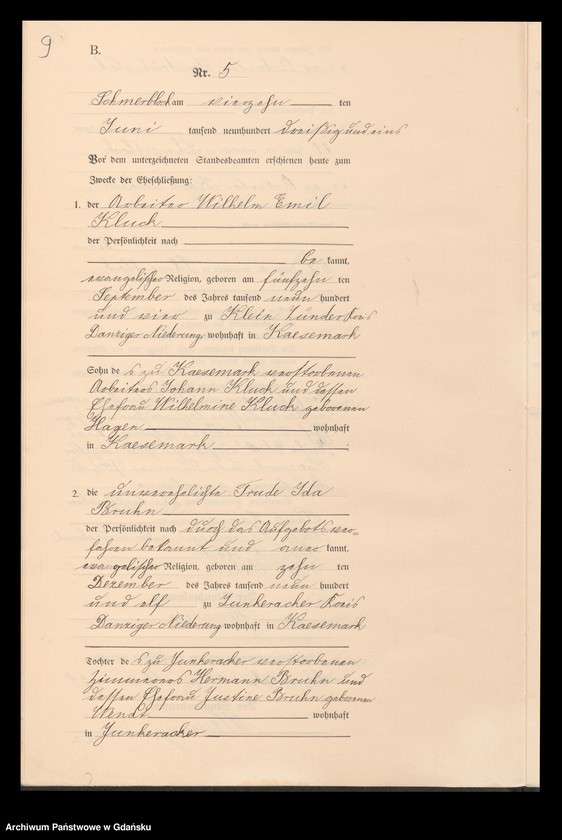 9
B.
Nr. 5
Schmerblock am vierzehn ten
Juni tausend neunhundert dreißigundeins
Vor dem unterzeichneten Standesbeamten erschienen heute zum
Zwecke der Eheschließung:
1. der Arbeiter Wilhelm Emil
Kluck
der Persönlichkeit nach
be kannt,
evangelischer Religion, geboren am fünfzehn ten
September des Jahres tausend neun hundert
und vier zu Klein Zünder Kreis
Danziger Niederung, wohnhaft in Kaesemark
Sohn de s zu Kaesemark verstorbenen
Arbeiters Johann Kluck und dessen
Ehefrau Wilhelmine Kluck geborenen
Hagen wohnhaft
in Kaesemark .
2. die unverehelichte Trude Ida
Bruhn
der Persönlichkeit nach durch das Aufgebotsver=
fahren bekannt und aner kannt,
evangelischer Religion, geboren am zehn ten
Dezember des Jahres tausend neun hundert
und elf zu Junkeracker Kreis
Danziger Niederung wohnhaft in Kaesemark
Tochter de s zu Junkeracker verstorbenen
Zimmerers Hermann Bruhn und
dessen Ehefrau Justine Bruhn geborenen
Wendt wohnhaft
in Junkeracker
Archiwum Państwowe w Gdańsku